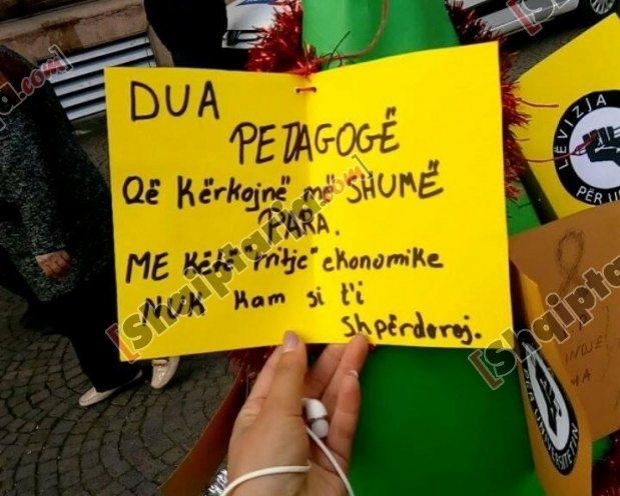 DUA
PETAGOGË
Që kërkojnë më SHUMË
PARA.
ME këtë "rritje" ekonomike
NUK kam si t'i
Shpërdoroj.
LËVIZJA
PËR UN
UNIVERSITETIN
[Shqiptarja.com]